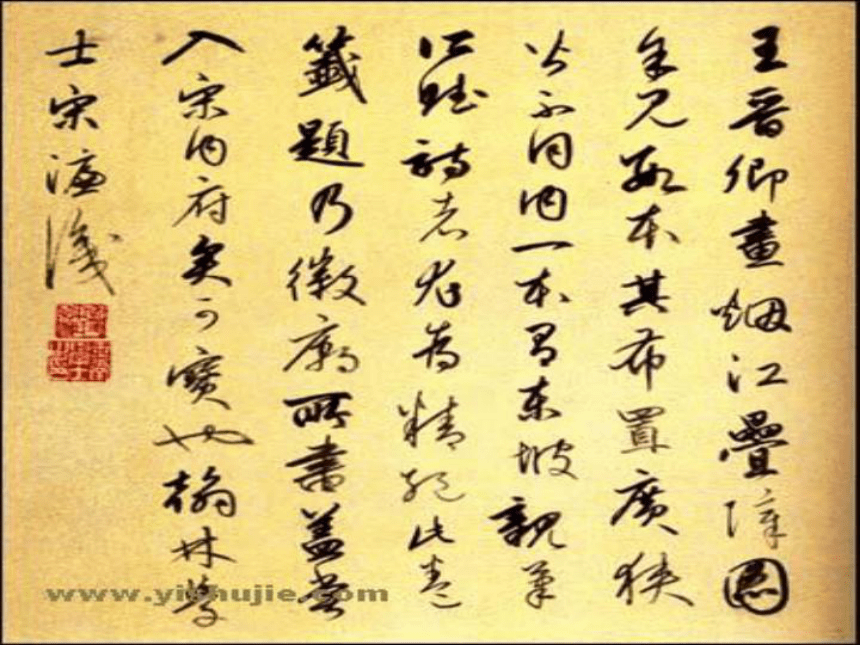 王晉卿畫烟江疊障圖
余見數本其布置廣狹
皆不同內一本有東坡親筆
賦詩者尤為精絕此卷
籤題乃徽廟所書蓋嘗
入宋內府矣可寶也翰林學
士宋濂識
www.yishujie.com